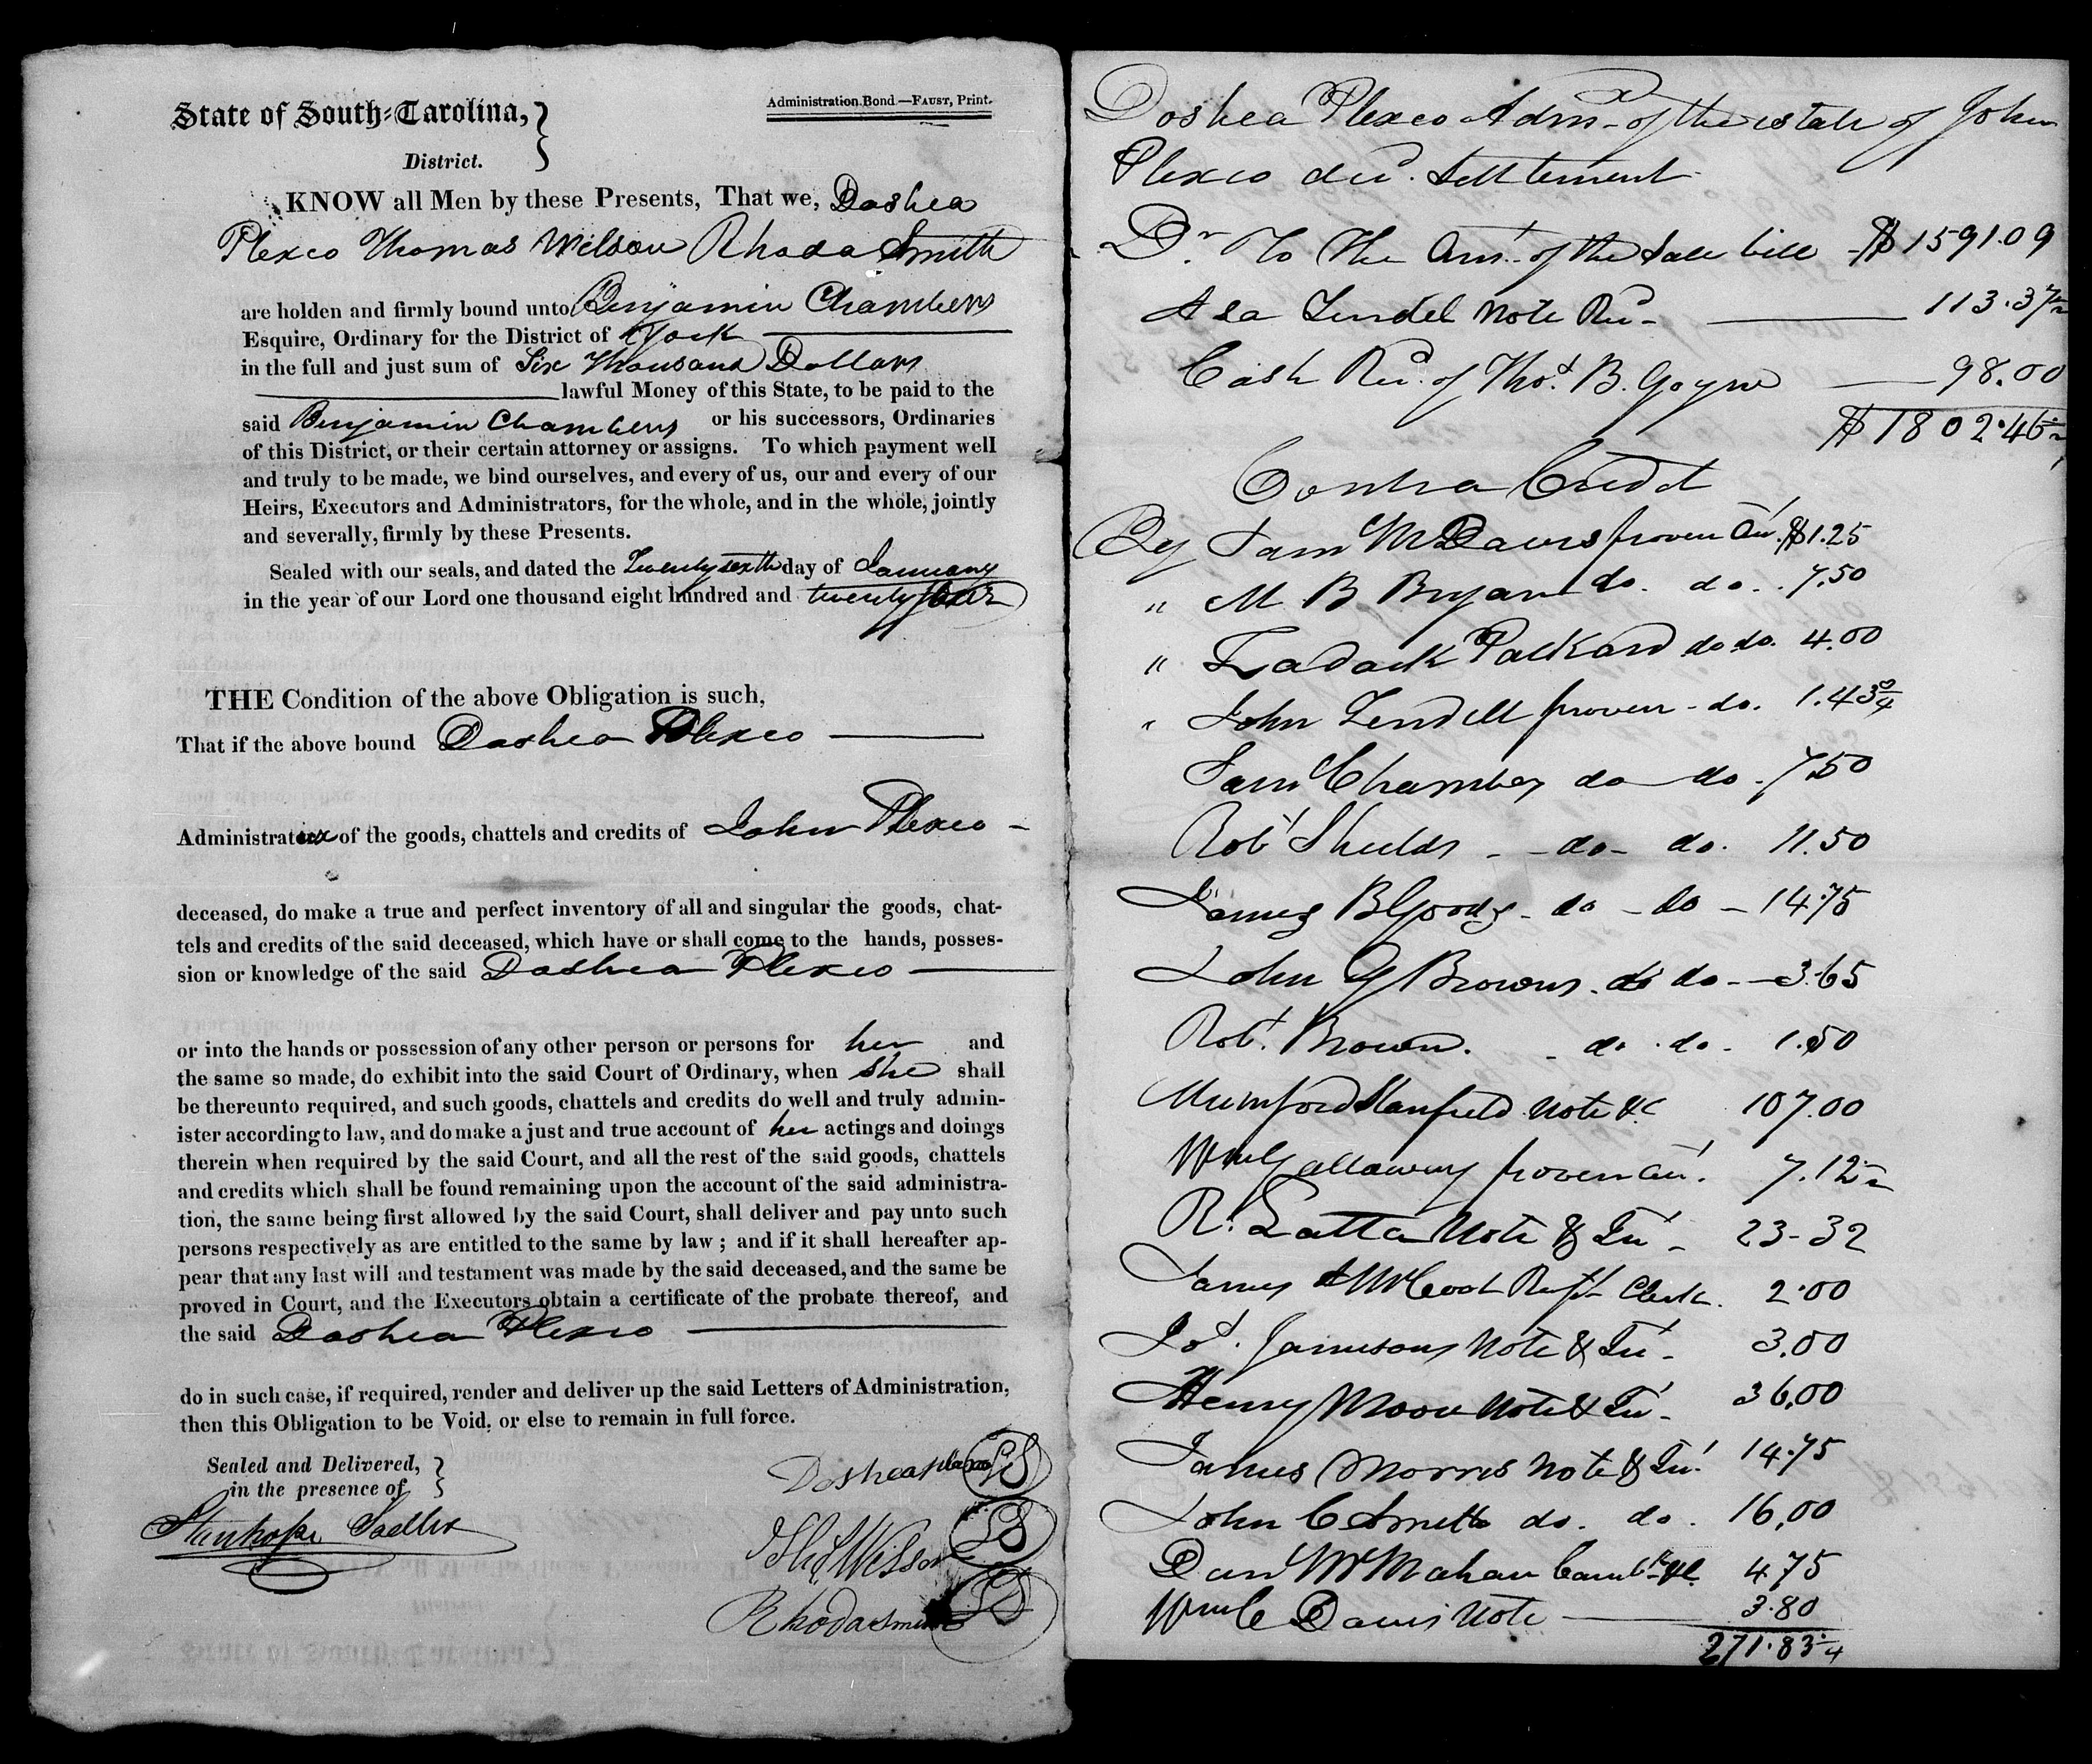 State of South-Carolina, }
District.
Administration Bond—FAUST, Print.
KNOW all Men by these Presents, That we, Doshea
Plexco Thomas Wilson Rhoda Smith
are holden and firmly bound unto Benjamin Chambers
Esquire, Ordinary for the District of York
in the full and just sum of Six Thousand Dollars
lawful Money of this State, to be paid to the
said Benjamin Chambers or his successors, Ordinaries
of this District, or their certain attorney or assigns. To which payment well
and truly to be made, we bind ourselves, and every of us, our and every of our
Heirs, Executors and Administrators, for the whole, and in the whole, jointly
and severally, firmly by these Presents.
Sealed with our seals, and dated the Twenty sixth day of January
in the year of our Lord one thousand eight hundred and twenty four
THE Condition of the above Obligation is such,
That if the above bound Doshea Plexco
Administratrix of the goods, chattels and credits of John Plexco
deceased, do make a true and perfect inventory of all and singular the goods, chat-
tels and credits of the said deceased, which have or shall come to the hands, posses-
sion or knowledge of the said Doshea Plexco
or into the hands or possession of any other person or persons for her and
the same so made, do exhibit into the said Court of Ordinary, when she shall
be thereunto required, and such goods, chattels and credits do well and truly admin-
ister according to law, and do make a just and true account of her actings and doings
therein when required by the said Court, and all the rest of the said goods, chattels
and credits which shall be found remaining upon the account of the said administra-
tion, the same being first allowed by the said Court, shall deliver and pay unto such
persons respectively as are entitled to the same by law ; and if it shall hereafter ap-
pear that any last will and testament was made by the said deceased, and the same be
proved in Court, and the Executors obtain a certificate of the probate thereof, and
the said Doshea Plexco
do in such case, if required, render and deliver up the said Letters of Administration,
then this Obligation to be Void, or else to remain in full force.
Sealed and Delivered, }
in the presence of }
Stanhope Sadler
Doshea Plexco LS
Thos Wilson LS
Rhoda Smith LS
Doshea Plexco Admx. of the estate of John
Plexco decd. Settlement
Dr. To the Amt. of the Sale bill $1591.09
Asa Lindel Note Recd - 113.37½
Cash Recd. of Thos. B. Goyne 98.00
$1802.46½
Contra Credit
By Sam McDavis proven Act. $1.25
" M B Bryan do. do. 7.50
" Zadack Packard do do. 4.00
" John Lendell proven - do. 1.43¾
Saml Chambers do do - 7.50
Robt Shields - do - do. 11.50
James B Goods - do - do - 14.75
John G Browns - do do - 3.65
Robt. Brown. - do. do - 1.50
Mumford Stanfield Note &c 107.00
Wm Gallaway proven Act. 7.12½
R. Latta Note & Int - 23-32
James McCook Rect Clerk. 2.00
Jos. Jamesons Note & Int - 3.00
Henry Moore Note & Int - 36.00
James Morris Note & Int. 14.75
John C Smith do. do. 16.00
Danl McMahan &c 4.75
Wm C Davis Note 3.80
271.83¼